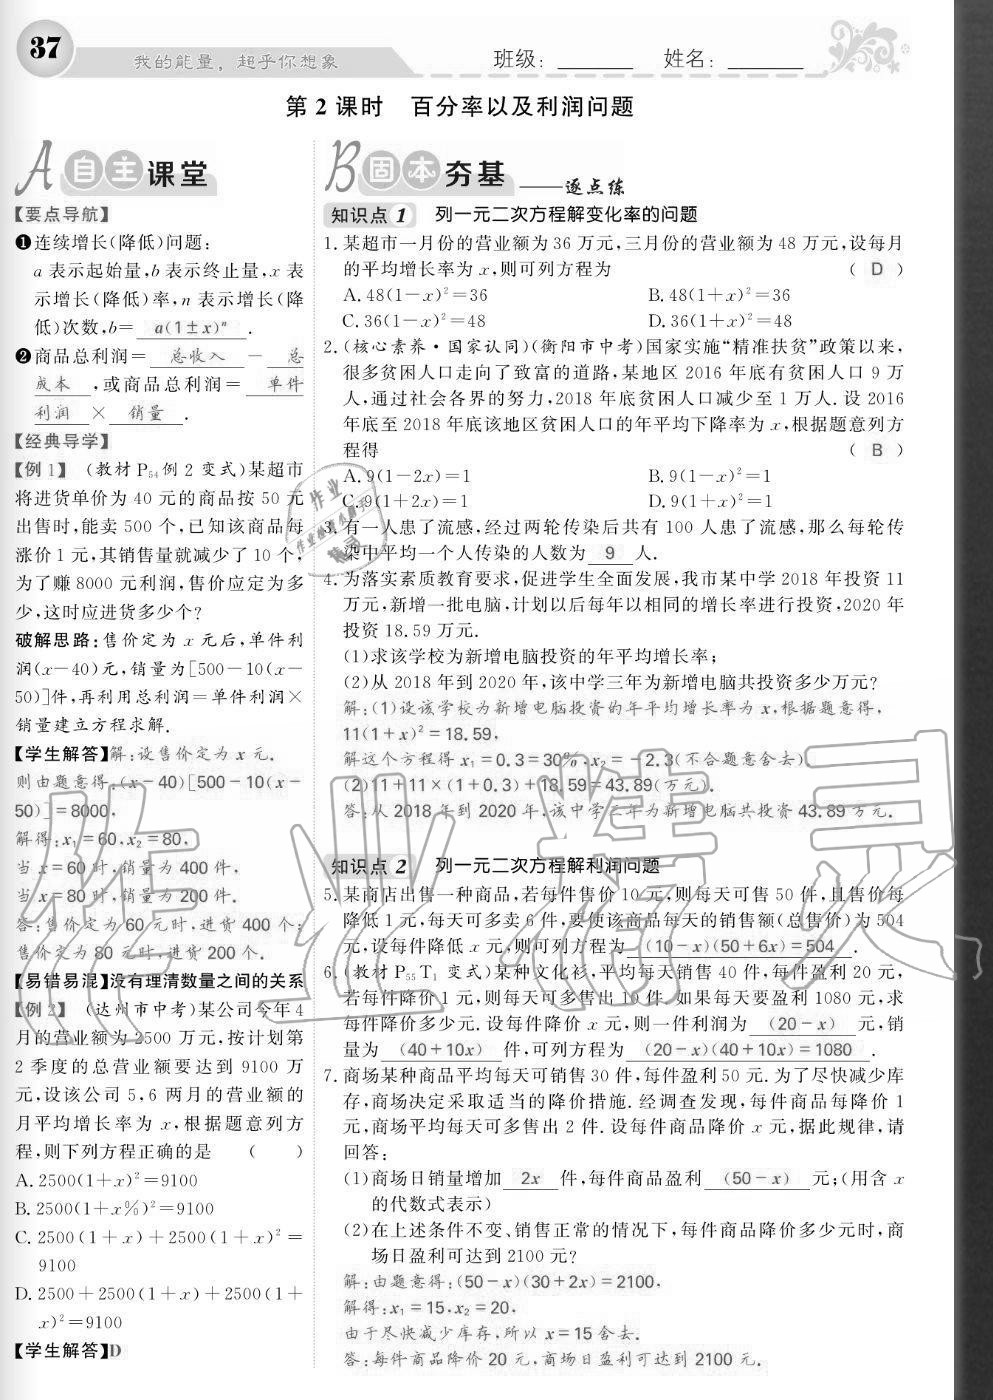 37
我的能量，超乎你想象
班级：
姓名：
第 2 课时　百分率以及利润问题
A 自主课堂
【要点导航】
❶连续增长(降低)问题：
a 表示起始量,b 表示终止量,x 表
示增长(降低)率,n 表示增长(降
低)次数,b= a(1±x)ⁿ .
❷商品总利润= 总收入 － 总
成本 ,或商品总利润= 单件
利润 × 销量 .
【经典导学】
【例 1】 (教材 P₅₄例 2 变式)某超市
将进货单价为 40 元的商品按 50 元
出售时,能卖 500 个,已知该商品每
涨价 1 元,其销售量就减少了 10 个,
为了赚 8000 元利润,售价应定为多
少,这时应进货多少个?
破解思路:售价定为 x 元后,单件利
润(x－40)元,销量为[500－10(x－
50)]件,再利用总利润=单件利润×
销量建立方程求解.
【学生解答】解:设售价定为 x 元.
则由题意得:(x－40)[500－10(x－
50)]=8000,
解得:x₁=60,x₂=80,
当 x=60 时,销量为 400 件,
当 x=80 时,销量为 200 件.
答:售价定为 60 元时,进货 400 个;
售价定为 80 元时,进货 200 个.
【易错易混】没有理清数量之间的关系
【例 2】 (达州市中考)某公司今年 4
月的营业额为 2500 万元,按计划第
2 季度的总营业额要达到 9100 万
元,设该公司 5、6 两月的营业额的
月平均增长率为 x,根据题意列方
程,则下列方程正确的是 (　　)
A. 2500(1＋x)²=9100
B. 2500(1＋x%)²=9100
C. 2500(1＋x)＋2500(1＋x)²=
9100
D. 2500＋2500(1＋x)＋2500(1＋
x)²=9100
【学生解答】D
B 固本夯基 ——逐点练
知识点 1　列一元二次方程解变化率的问题
1. 某超市一月份的营业额为 36 万元,三月份的营业额为 48 万元,设每月
的平均增长率为 x,则可列方程为 ( D )
A. 48(1－x)²=36　B. 48(1＋x)²=36
C. 36(1－x)²=48　D. 36(1＋x)²=48
2. (核心素养·国家认同)(衡阳市中考)国家实施“精准扶贫”政策以来,
很多贫困人口走向了致富的道路,某地区 2016 年底有贫困人口 9 万
人,通过社会各界的努力,2018 年底贫困人口减少至 1 万人. 设 2016
年底至 2018 年底该地区贫困人口的年平均下降率为 x,根据题意列方
程得 ( B )
A. 9(1－2x)=1　B. 9(1－x)²=1
C. 9(1＋2x)=1　D. 9(1＋x)²=1
3. 有一人患了流感,经过两轮传染后共有 100 人患了流感,那么每轮传
染中平均一个人传染的人数为 9 人.
4. 为落实素质教育要求,促进学生全面发展,我市某中学 2018 年投资 11
万元,新增一批电脑,计划以后每年以相同的增长率进行投资,2020 年
投资 18.59 万元.
(1)求该学校为新增电脑投资的年平均增长率;
(2)从 2018 年到 2020 年,该中学三年为新增电脑共投资多少万元?
解:(1)设该学校为新增电脑投资的年平均增长率为 x,根据题意得,
11(1＋x)²=18.59,
解这个方程得 x₁=0.3=30%,x₂=－2.3(不合题意舍去).
(2)11＋11×(1＋0.3)＋18.59=43.89(万元).
答:从 2018 年到 2020 年,该中学三年为新增电脑共投资 43.89 万元.
知识点 2　列一元二次方程解利润问题
5. 某商店出售一种商品,若每件售价 10 元,则每天可售 50 件,且售价每
降低 1 元,每天可多卖 6 件,要使该商品每天的销售额(总售价)为 504
元,设每件降低 x 元,则可列方程为 (10－x)(50＋6x)=504 .
6. (教材 P₅₅T₁ 变式)某种文化衫,平均每天销售 40 件,每件盈利 20 元,
若每件降价 1 元,则每天可多售出 10 件. 如果每天要盈利 1080 元,求
每件降价多少元. 设每件降价 x 元,则一件利润为 (20－x) 元,销
量为 (40＋10x) 件,可列方程为 (20－x)(40＋10x)=1080 .
7. 商场某种商品平均每天可销售 30 件,每件盈利 50 元. 为了尽快减少库
存,商场决定采取适当的降价措施. 经调查发现,每件商品每降价 1
元,商场平均每天可多售出 2 件. 设每件商品降价 x 元,据此规律,请
回答:
(1)商场日销量增加 2x 件,每件商品盈利 (50－x) 元;(用含 x
的代数式表示)
(2)在上述条件不变、销售正常的情况下,每件商品降价多少元时,商
场日盈利可达到 2100 元?
解:由题意得:(50－x)(30＋2x)=2100,
解得:x₁=15,x₂=20,
由于尽快减少库存,所以 x=15 舍去.
答:每件商品降价 20 元,商场日盈利可达到 2100 元.
作业精灵